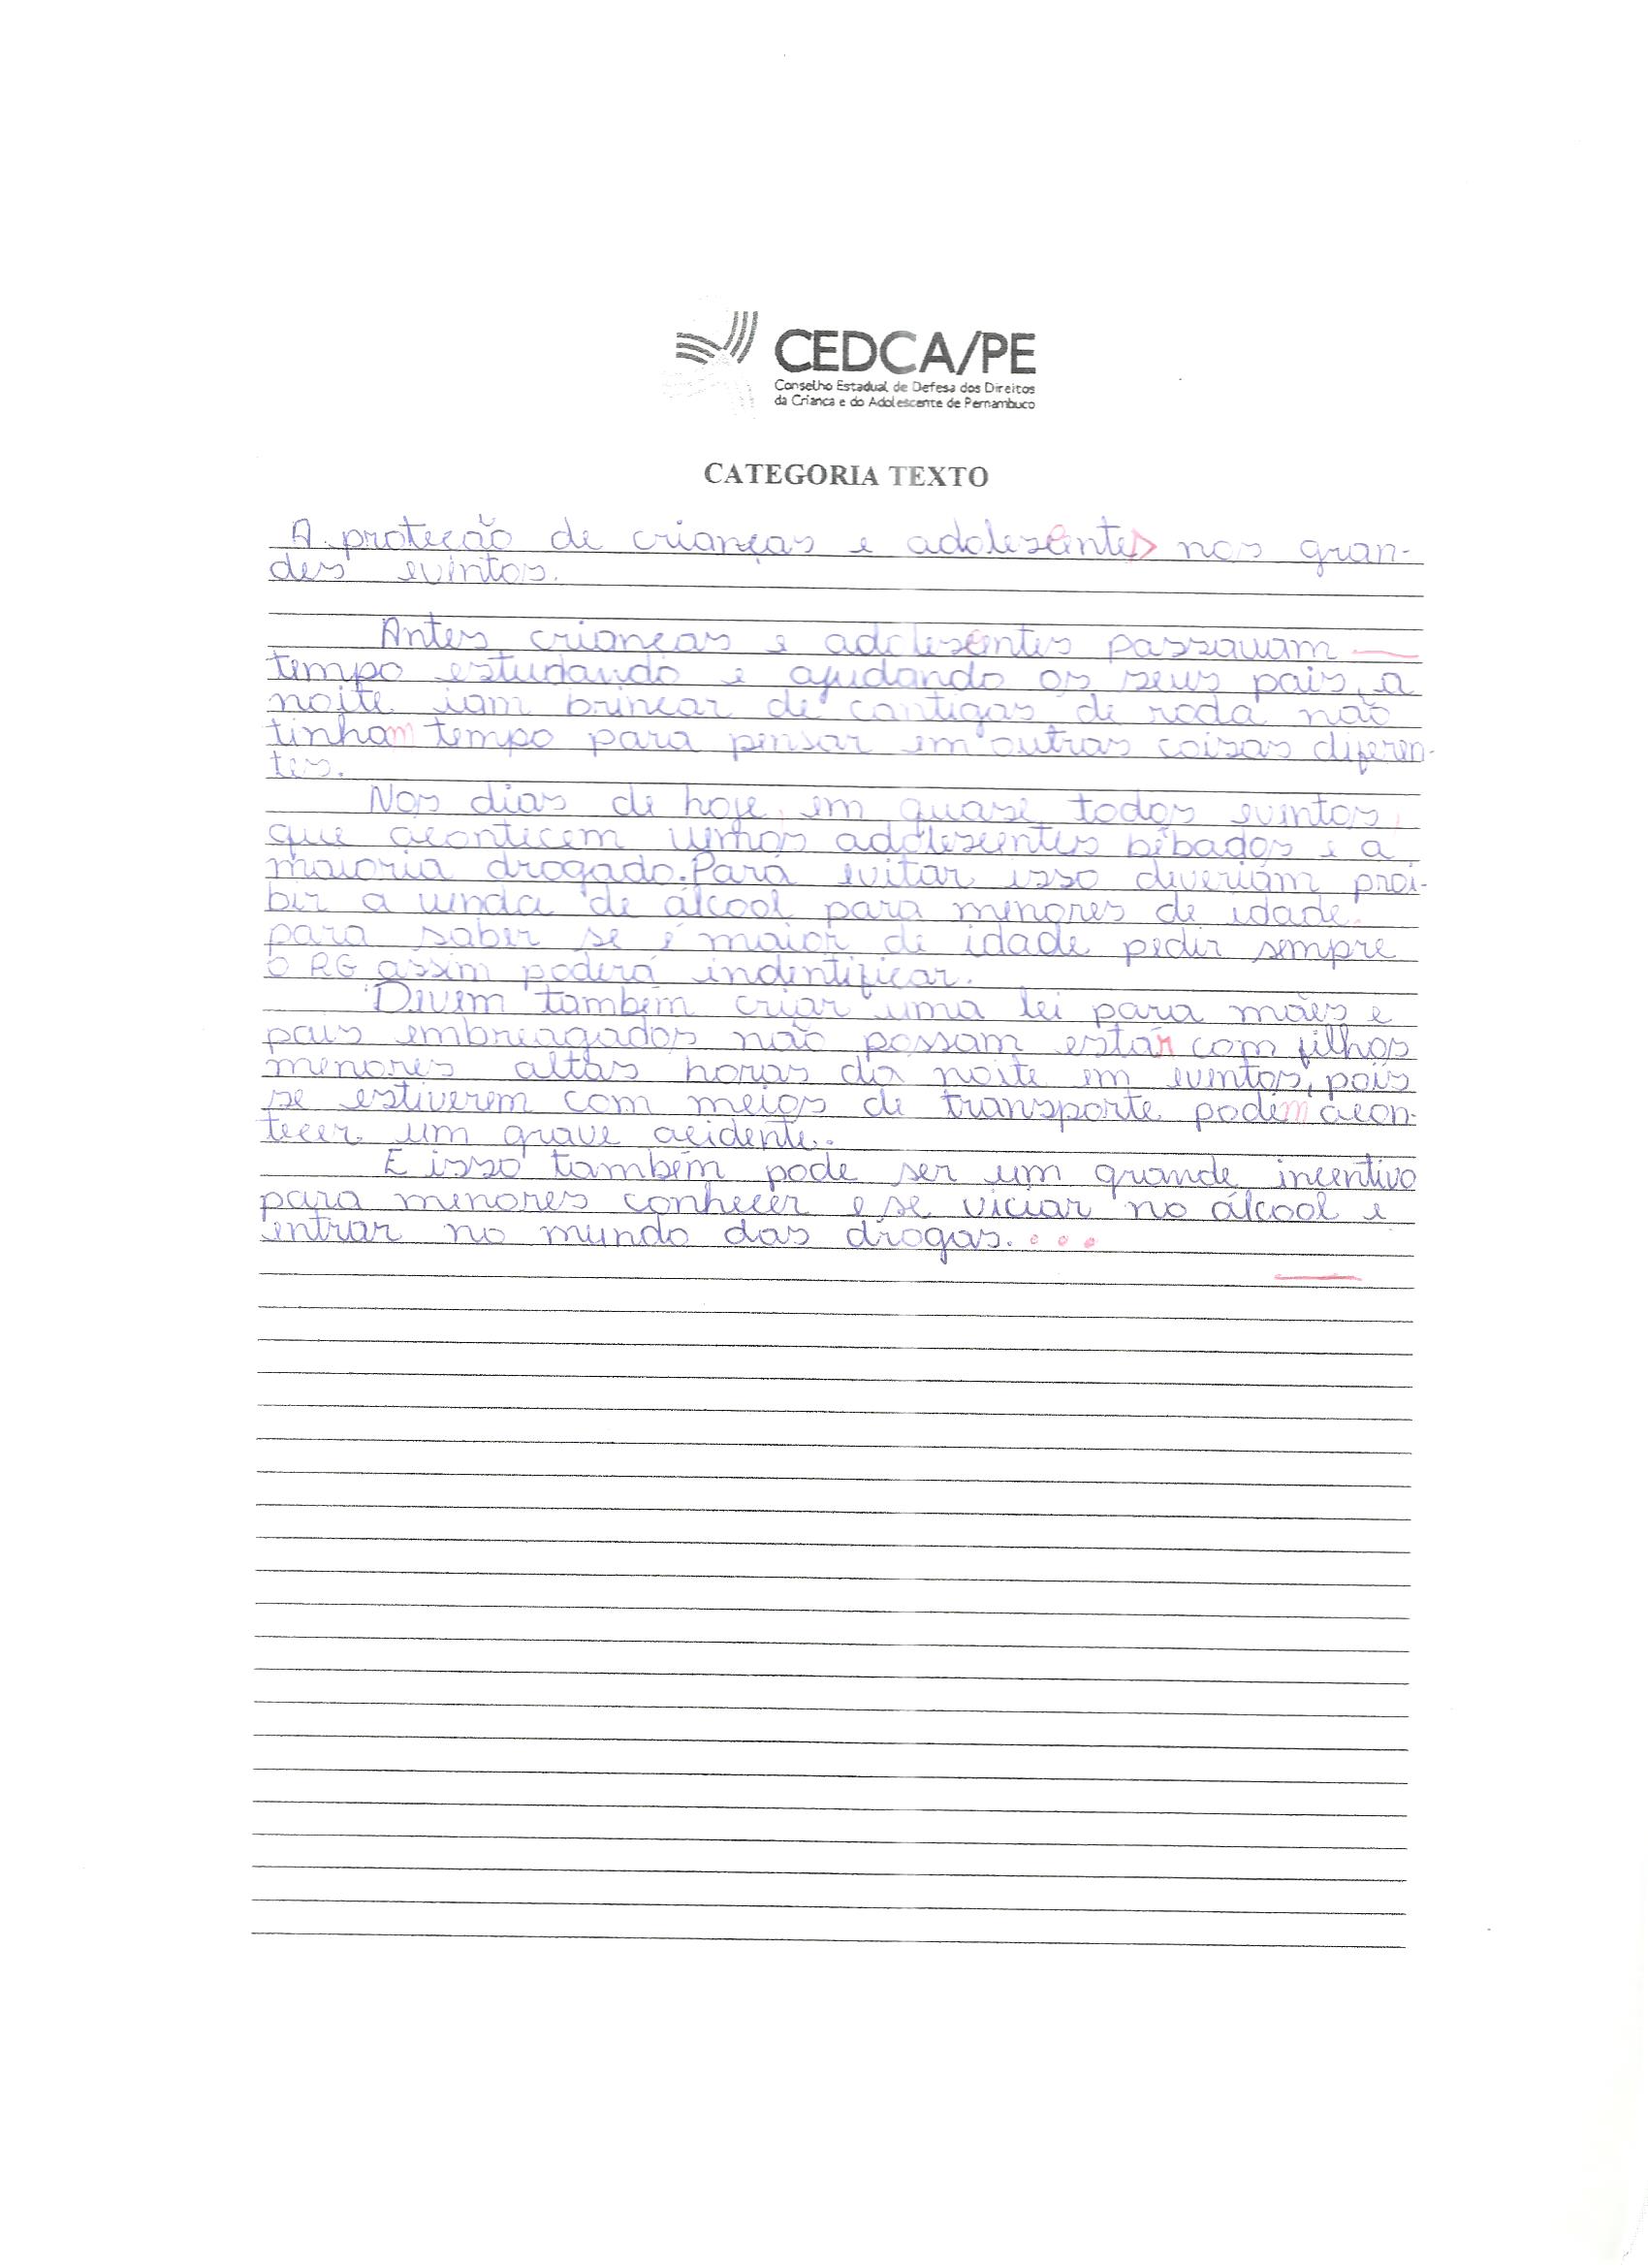 CEDCA/PE
Conselho Estadual de Defesa dos Direitos
da Criança e do Adolescente de Pernambuco
CATEGORIA TEXTO
A proteção de crianças e adolescentes nos gran-
des eventos.
Antes crianças e adolescentes passavam
tempo estudando e ajudando os seus pais, a
noite iam brincar de cantigas de roda não
tinham tempo para pensar em outras coisas diferen-
tes.
Nos dias de hoje, em quase todos eventos,
que acontecem vemos adolescentes bêbados e a
maioria drogado. Para evitar isso deveriam proi-
bir a venda de álcool para menores de idade.
para saber se é maior de idade pedir sempre
o RG assim poderá indentificar.
Devem também criar uma lei para mães e
pais embreagados não possam estar com filhos
menores altas horas da noite em eventos, pois
se estiverem com meios de transporte podem acon-
tecer um grave acidente.
E isso também pode ser um grande incentivo
para menores conhecer e se viciar no álcool e
entrar no mundo das drogas...